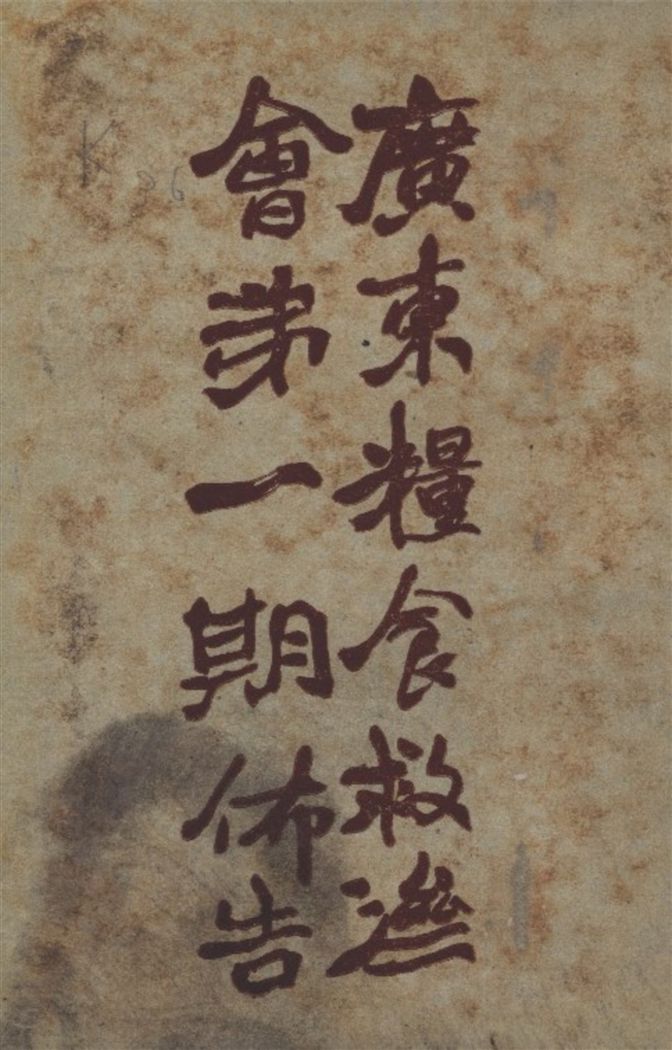 廣東糧食救濟
會第一期佈告
K 36